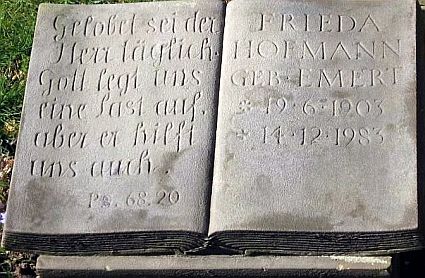 Gelobet sei der
Herr täglich.
Gott legt uns
eine Last auf.
aber er hilft
uns auch.
Ps. 68.20
FRIEDA
HOFMANN
GEB·EMERT
* 19·6·1903
+ 14·12·1983